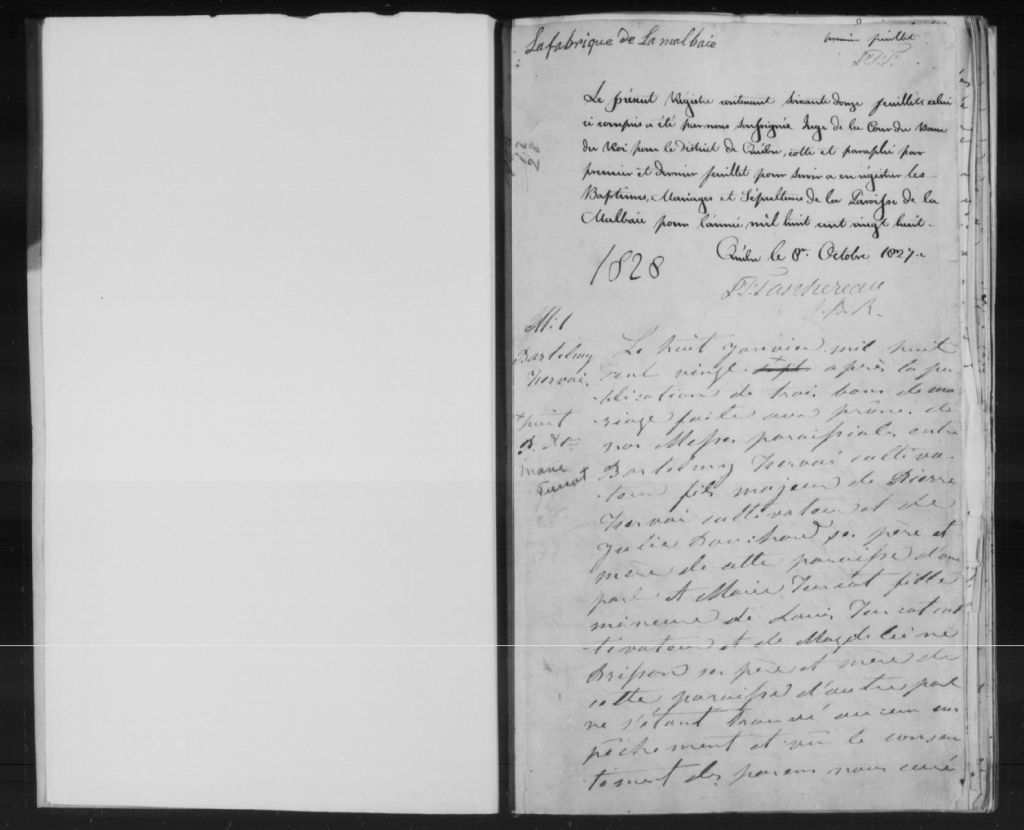 La fabrique de La malbaie
premier feuillet
Le présent Registre contenant Soixante douze feuillets celui
ci compris a été par nous Soussignée Juge de la Cour du Banc
du Roi pour le District de Québec, cotté et paraphé par
premier et dernier feuillet pour servir a enrégistrer les
Baptêmes, Mariages et Sépultures de la Paroisse de la
Malbaie pour l'année mil huit cent vingt huit.
Québec le 8e. Octobre 1827.
1828
J.B.R.
M: 1
Bartelmy
Hervai
&
Marie
Turcot
Le huit janvier mil huit
cent vingt sept après la pu
blication de trois bans de ma
riage faite aux prônes de
nos Messes paroissiales entre
Bartelmy Hervai cultiva-
teur fils majeur de Pierre
Hervai cultivateur et de
Julie Bouchard ses père et
mère de cette paroisse d'une
part et Marie Turcot fille
mineure de Louis Turcot cul
tivateur et de Magdeleine
Brisson ses père et mère de
cette paroisse d'autre part
ne s'étant trouvé aucun em
pêchement et vû le consen
tement des parens nous curé